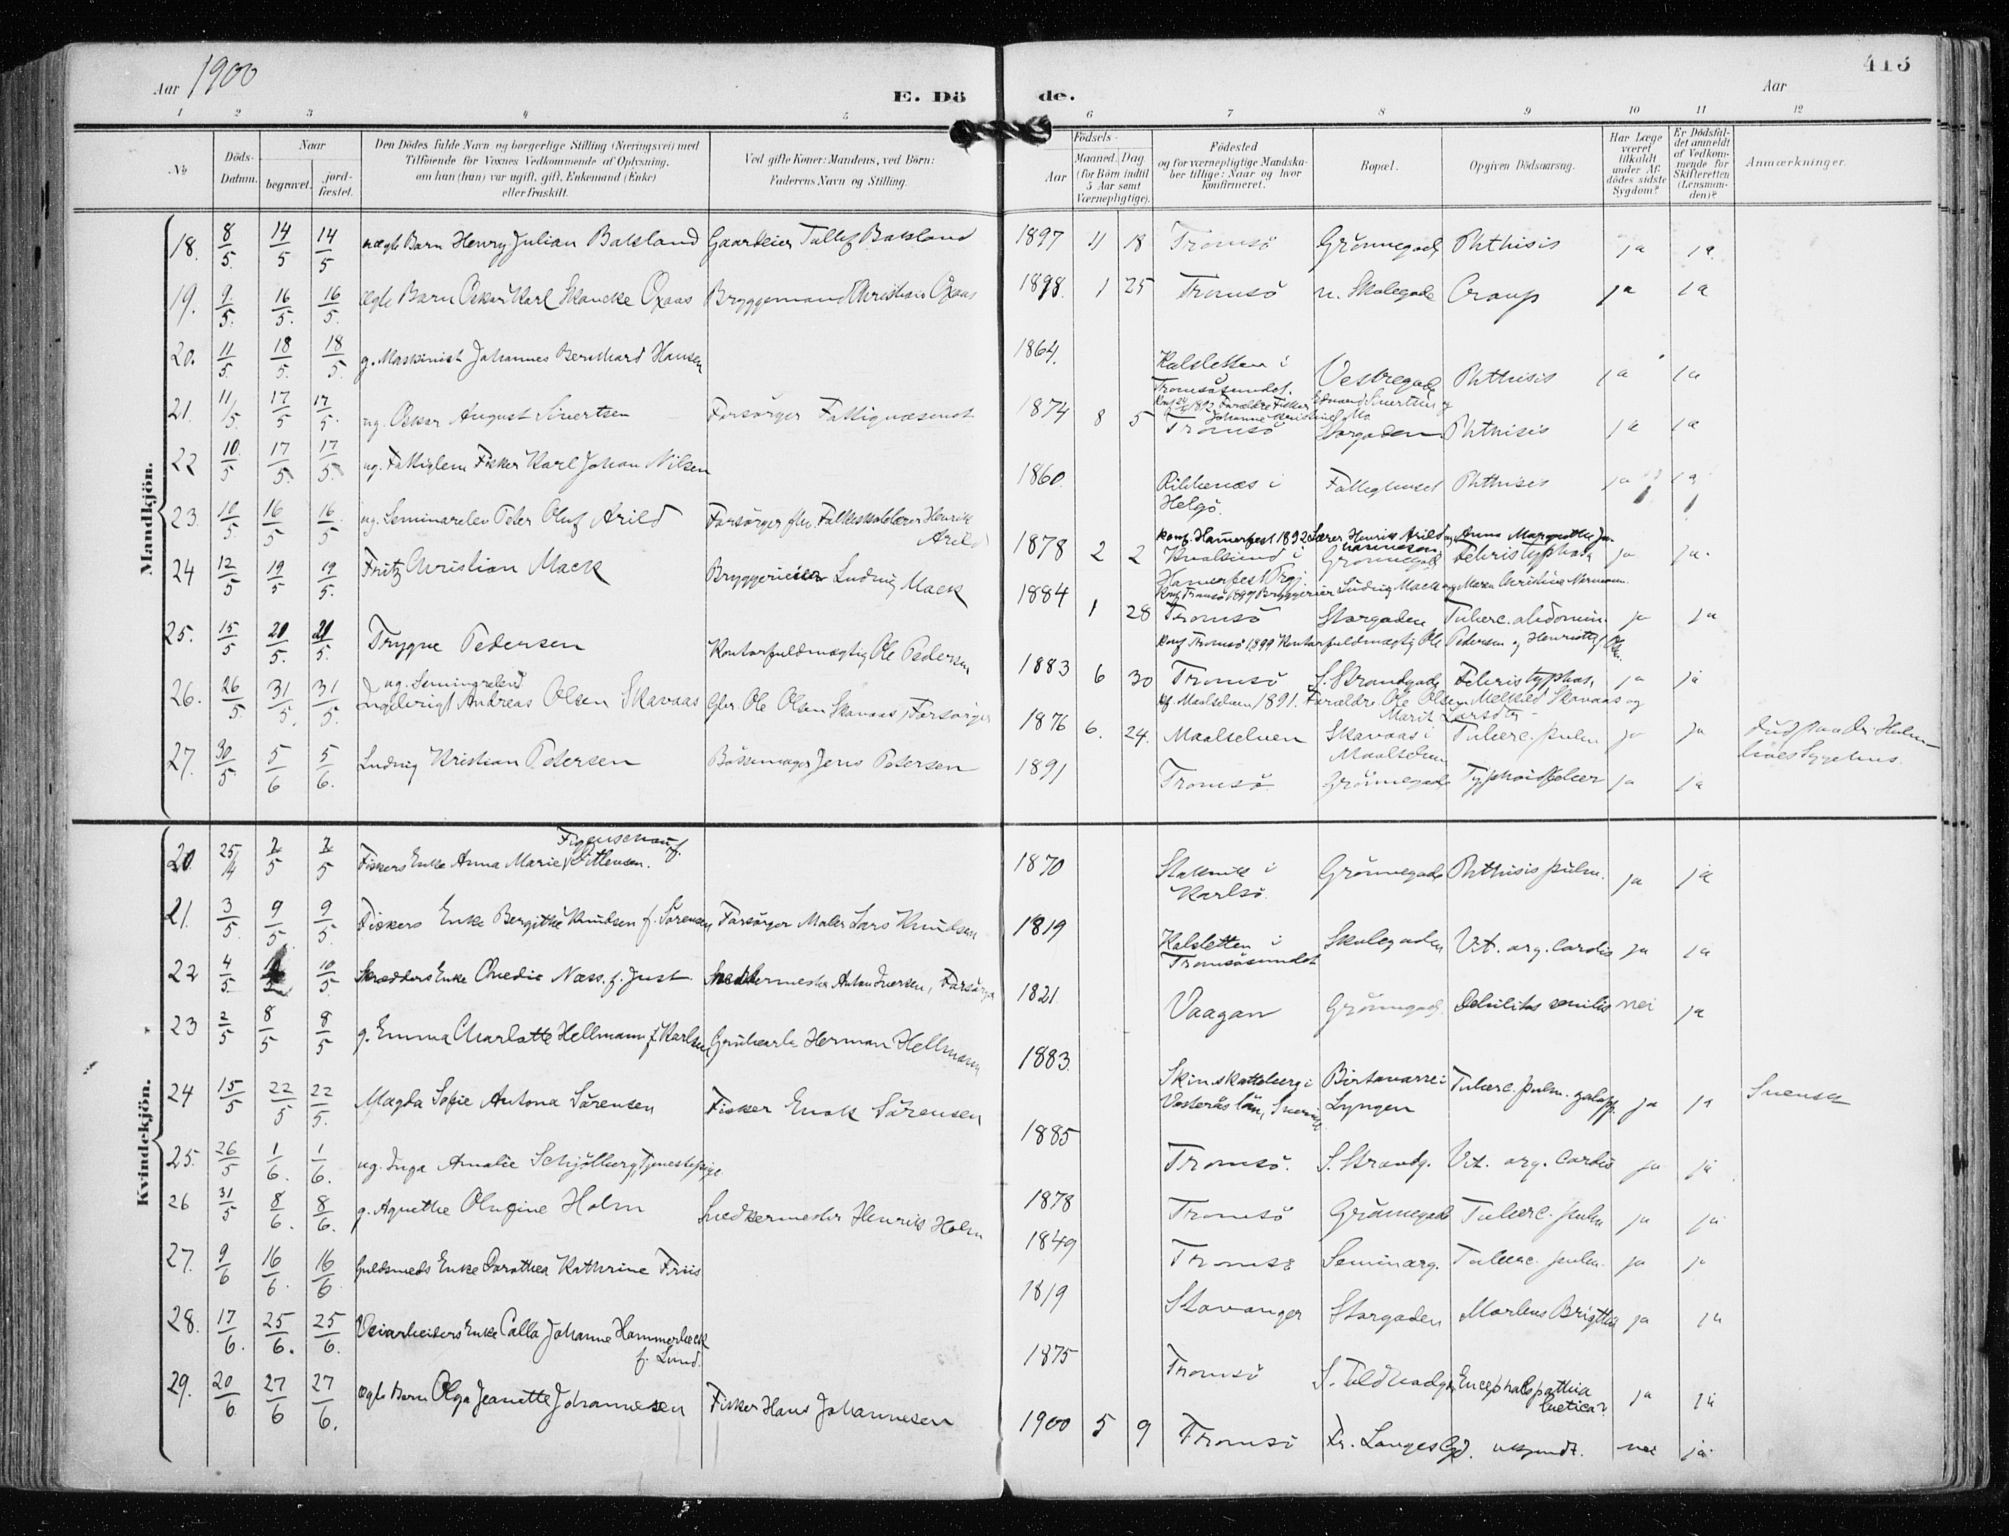 Aar 1900
E. Dö de.
415
Aar
1 2 3 4 5 6 7 8 9 10 11 12
No
Döds-Datum.
Naar
begravet. jord-festet.
Den Dödes fulde Navn og borgerlige Stilling (Næringsvei) med
Tilföiende for Voxnes Vedkommende af Oplysning.
om han (hun) var ugift, gift, Enkemand (Enke)
eller fraskilt.
Ved gifte Koner: Mandens, ved Börn:
Faderens Navn og Stilling.
Födsels-
Aar
Maaned. Dag.
(for Börn indtil
5 Aar samt
Værnepligtige).
Födested
og for værnepligtige Mandska-
ber tillige: Naar og hvor
konfirmeret.
Bopæl.
Opgiven Dödsaarsag.
Har Læge
været
tilkaldt
under Af-
dödes sidste
Sygdom?
Er Dödsfal-
det anmeldt
af Vedkom-
mende for
Skifteretten
(Lensman-
den)?
Anmærkninger.
Mandkjön.
18. 8/5. 14/5 14/5 Henry Julian Balsland Gaardeier Balsland 1897 11 18 Tromsö Grönnegad. Phthisis ja ja
19. 9/5. 16/5. 16/5. ægte Barn Oskar Karl Skancke Oxaas Bryggemand Christian Oxaas 1898. 1 25 Tromsö n. Skolegade Croup ja ja
20. 11/5 18/5. 18/5. g. Maskinist Johannes Bernhard Hansen 1864. Kalsletten i
Tromsösundet. Vestregade Phthisis ja ja
21. 11/5. 17/5 17/5. ug. Oskar August Sivertsen Forsörger Fattigvæsenet 1874 8 5 Tromsö Storgaden Phthisis ja ja
22 10/5 17/5. 17/5. ug. Fattiglem Fisker Karl Johan Nilsen 1860. i
Helgö. Fattighuset Phthisis ja ja
23. 10/5. 16/5 16/5. ug. Seminarelev Peter Oluf Arild Forsörger fhv. Folkeskolelærer Henrik
Arild 1878 2 2 Konf. Hamerfest 1892 Lærer Henrik Arild og Anna Margrethe
Kvalsund i Grönnegad. Febris typhoid. ja ja.
Hamerfest Prgj.
24 12/5 19/5 19/5. Fritz Christian Mack Bryggerieier Ludvig Mack 1884 1 28 Tromsö Storgaden Tuberc. abdomin. ja ja
25. 15/5 20/5. 20/5. Trygve Pedersen Kontorfuldmægtig Ole Pedersen 1883 6 30 Konf. Tromsö 1899 Kontorfuldmægtig Ole Pedersen og
Tromsö S. Strandgade Febris typhoid. ja ja
26. 26/5. 31/5. 31/5. Ingebrigt Andreas Olsen Skavaas Gbr. Ole Olsen Skavaas, Forsörger 1876 6. 24. Maalselven 1891. Forældre Ole Olsen Skavaas og
Marit Larsdtr.
Maalselven Skavaas i
Maalselven Tuberc. pulm. ja ja
27. 30/5 5/6 5/6. Ludvig Kristian Petersen Bössemager Jens Petersen 1891 Tromsö. Grönnegade Typhoidfeber ja ja
Kvindekjön.
20. 25/4 2/5 2/5 Fiskers Enke Anna Marie 1870 i
Karlsö. Grönnegade Phthisis pulm. ja ja
21. 3/5. 9/5. 9/5. Fiskers Enke Bergithe Knudsen f. Sörensen Forsörger Maler Lars Knudsen 1819 Kalsletten i
Tromsösundet Skolegaden Vit. org. cordis ja ja
22 4/5. 10/5. Skrædders Enke Næss. f. Just Snedkermester Anton Iversen, Forsörger 1821. Vaagan Grönnegad. Debilitas senilis nei ja
23 2/5 8/5 8/5 g. Emma Charlotte Hellmann f. Karlsen Herman Hellmann 1883. Skinskatteberg i
Vesterås län, Sverige Birtavarre i
Lyngen Tuberc. pulm. galopp. ja ja Svensk
24 15/5 22/5 22/5. Magda Sofie Antona Sörensen Fisker Enok Sörensen 1885 Tromsö. S. Strandg. Vit. org. cordis ja ja
25. 26/5 1/6. 1/6. ug. Inga Amalie Schjölberg, Tjenestepige 1878 Tromsö Grönnegade Tuberc. pulm ja ja
26 31/5 8/6. 8/6. g. Agnethe Olufine Holm Snedkermester Henrik Holm 1849 Tromsö Seminarg. Tuberc. pulm. ja ja
27. 9/6 16/6. 16/6. Guldsmeds Enke Dorothea Kathrine Friis 1819 Stavanger Storgaden Morbus Brigthii ja ja
28. 17/6. 25/6. 25/6. Veiarbeiders Enke Calla Johanne Hammerbeck
f. Lund. 1875 Tromsö Encephalopathia
luetica? ja ja
29. 20/6 27/6 27/6. ægte Barn Olga Jeanette Johannesen Fisker Hans Johannesen 1900 5 9 Tromsö Fr. Langes Gd. ukjendt. nei ja